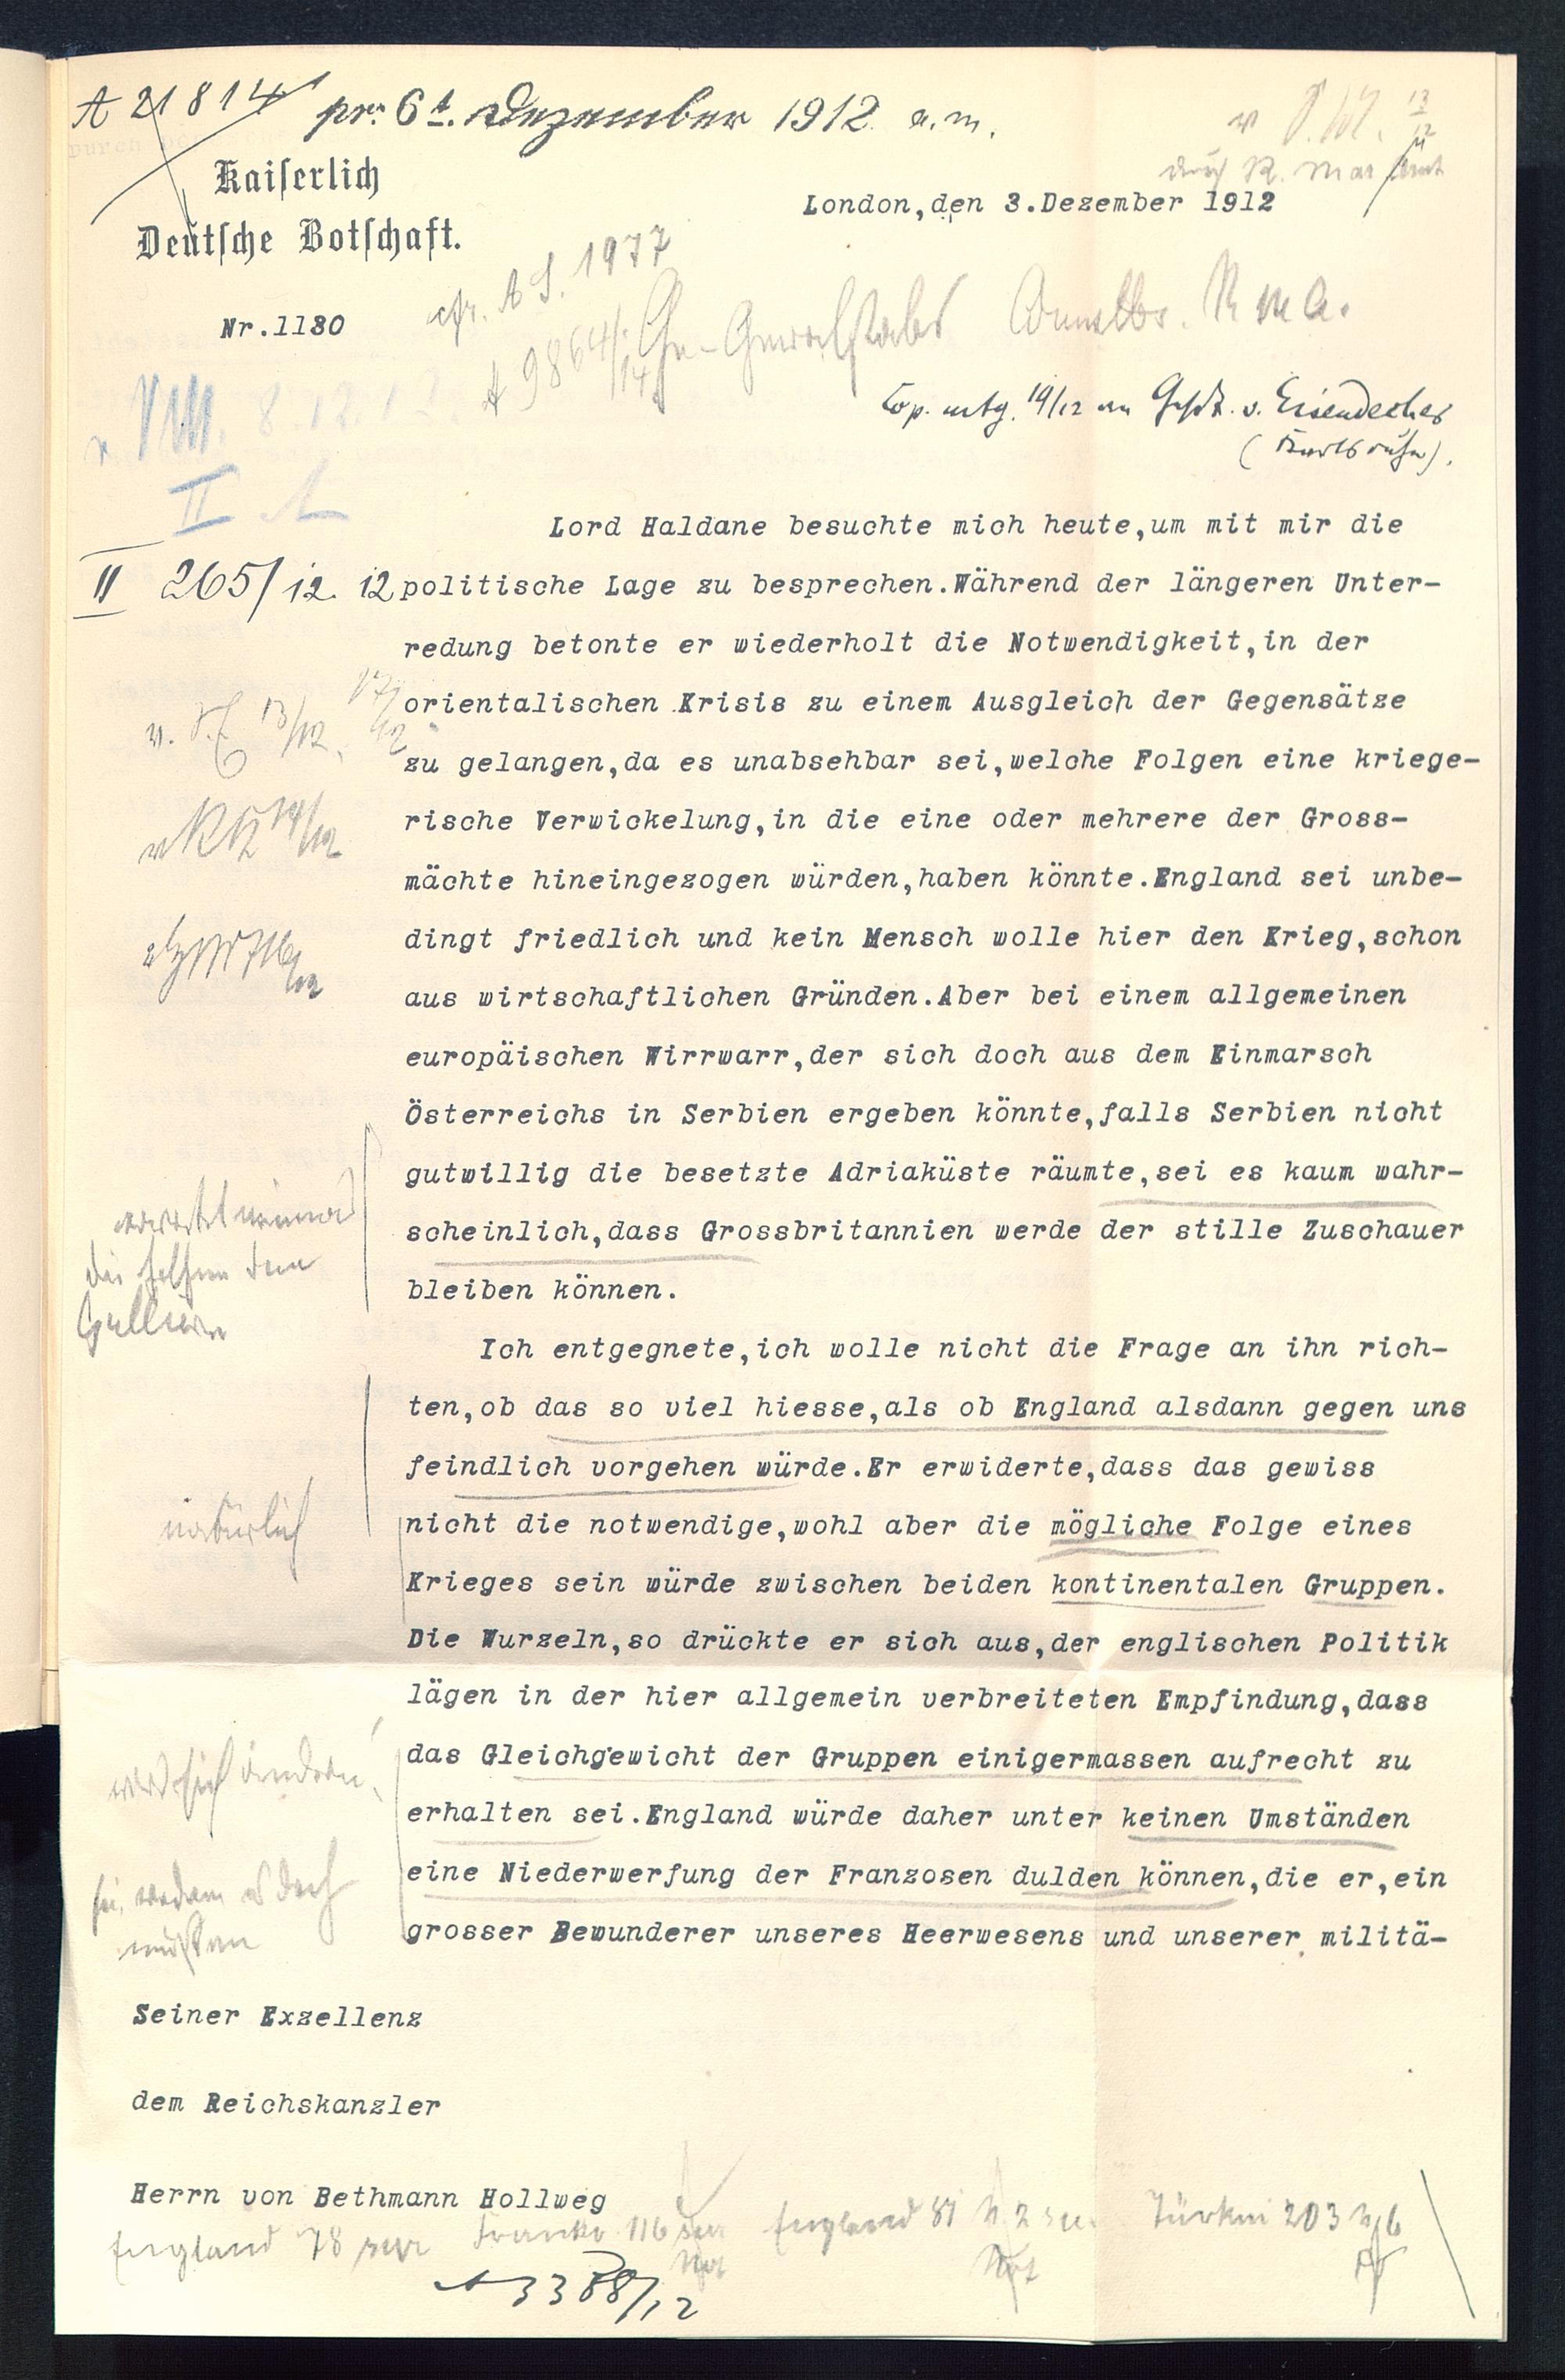 A 21814 pr. 6t. Dezember 1912. a.m.
Kaiserlich
Deutsche Botschaft.
London,den 3.Dezember 1912
Nr.1180
cfr. A S. 1977
A 9864/14
Cop. mtg. 14/12 an Gesdt. v. Eisendecher
(Karlsruhe).
II
II 265/12. 12
Lord Haldane besuchte mich heute,um mit mir die
politische Lage zu besprechen.Während der längeren Unter-
redung betonte er wiederholt die Notwendigkeit,in der
orientalischen Krisis zu einem Ausgleich der Gegensätze
zu gelangen,da es unabsehbar sei,welche Folgen eine kriege-
rische Verwickelung,in die eine oder mehrere der Gross-
mächte hineingezogen würden,haben könnte.England sei unbe-
dingt friedlich und kein Mensch wolle hier den Krieg,schon
aus wirtschaftlichen Gründen.Aber bei einem allgemeinen
europäischen Wirrwarr,der sich doch aus dem Einmarsch
Österreichs in Serbien ergeben könnte,falls Serbien nicht
gutwillig die besetzte Adriaküste räumte,sei es kaum wahr-
scheinlich,dass Grossbritannien werde der stille Zuschauer
bleiben können.
Ich entgegnete,ich wolle nicht die Frage an ihn rich-
ten,ob das so viel hiesse,als ob England alsdann gegen uns
feindlich vorgehen würde.Er erwiderte,dass das gewiss
natürlich
nicht die notwendige,wohl aber die mögliche Folge eines
Krieges sein würde zwischen beiden kontinentalen Gruppen.
Die Wurzeln,so drückte er sich aus,der englischen Politik
lägen in der hier allgemein verbreiteten Empfindung,dass
wird sich ändern!
das Gleichgewicht der Gruppen einigermassen aufrecht zu
erhalten sei.England würde daher unter keinen Umständen
sie werden es doch
müssen
eine Niederwerfung der Franzosen dulden können,die er,ein
grosser Bewunderer unseres Heerwesens und unserer militä-
Seiner Exzellenz
dem Reichskanzler
Herrn von Bethmann Hollweg
England 78 Frankr. 116 England 81 Türkei 203
A 3388/12